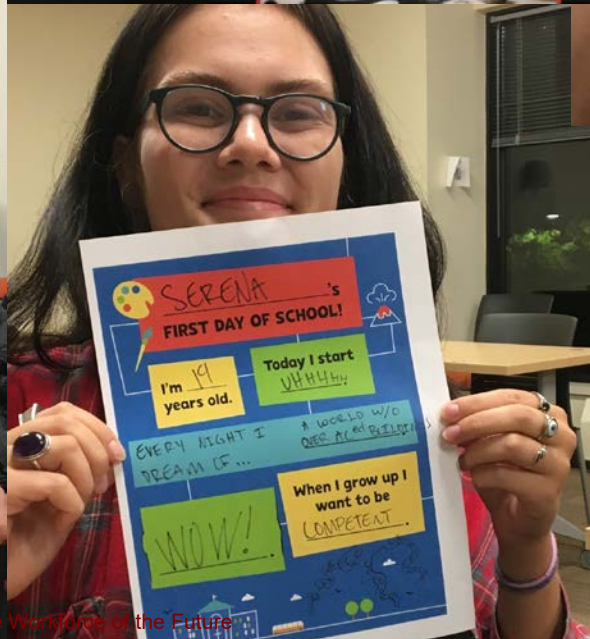 SERENA 's
FIRST DAY OF SCHOOL!
I'm 19
years old.
Today I start
UHHHHH
EVERY NIGHT I
DREAM OF ...
A WORLD W/O
OVER ACed BUILDINGS
WOW! .
When I grow up I
want to be
COMPETENT .
Workforce of the Future